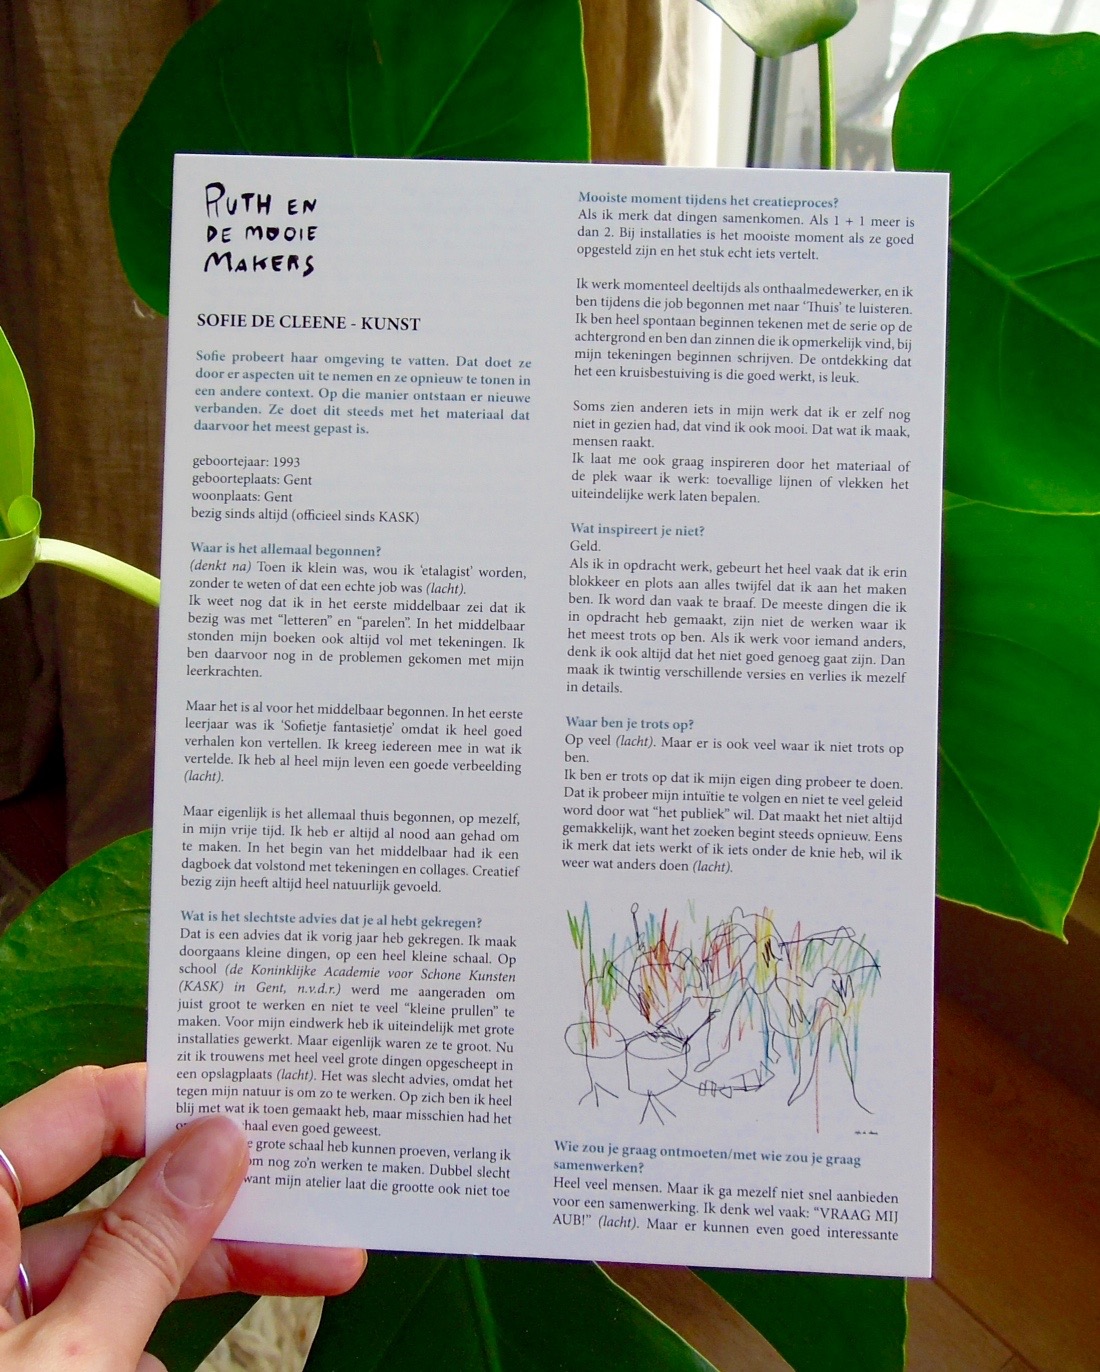 RUTH EN
DE MOOIE
MAKERS
SOFIE DE CLEENE - KUNST
Sofie probeert haar omgeving te vatten. Dat doet ze
door er aspecten uit te nemen en ze opnieuw te tonen in
een andere context. Op die manier ontstaan er nieuwe
verbanden. Ze doet dit steeds met het materiaal dat
daarvoor het meest gepast is.
geboortejaar: 1993
geboorteplaats: Gent
woonplaats: Gent
bezig sinds altijd (officieel sinds KASK)
Waar is het allemaal begonnen?
(denkt na) Toen ik klein was, wou ik 'etalagist' worden,
zonder te weten of dat een echte job was (lacht).
Ik weet nog dat ik in het eerste middelbaar zei dat ik
bezig was met “letteren” en “parelen”. In het middelbaar
stonden mijn boeken ook altijd vol met tekeningen. Ik
ben daarvoor nog in de problemen gekomen met mijn
leerkrachten.
Maar het is al voor het middelbaar begonnen. In het eerste
leerjaar was ik 'Sofietje fantasietje' omdat ik heel goed
verhalen kon vertellen. Ik kreeg iedereen mee in wat ik
vertelde. Ik heb al heel mijn leven een goede verbeelding
(lacht).
Maar eigenlijk is het allemaal thuis begonnen, op mezelf,
in mijn vrije tijd. Ik heb er altijd al nood aan gehad om
te maken. In het begin van het middelbaar had ik een
dagboek dat volstond met tekeningen en collages. Creatief
bezig zijn heeft altijd heel natuurlijk gevoeld.
Wat is het slechtste advies dat je al hebt gekregen?
Dat is een advies dat ik vorig jaar heb gekregen. Ik maak
doorgaans kleine dingen, op een heel kleine schaal. Op
school (de Koninklijke Academie voor Schone Kunsten
(KASK) in Gent, n.v.d.r.) werd me aangeraden om
juist groot te werken en niet te veel “kleine prullen” te
maken. Voor mijn eindwerk heb ik uiteindelijk met grote
installaties gewerkt. Maar eigenlijk waren ze te groot. Nu
zit ik trouwens met heel veel grote dingen opgescheept in
een opslagplaats (lacht). Het was slecht advies, omdat het
tegen mijn natuur is om zo te werken. Op zich ben ik heel
blij met wat ik toen gemaakt heb, maar misschien had het
even goed geweest.
grote schaal heb kunnen proeven, verlang ik
om nog zo'n werken te maken. Dubbel slecht
want mijn atelier laat die grootte ook niet toe
Mooiste moment tijdens het creatieproces?
Als ik merk dat dingen samenkomen. Als 1 + 1 meer is
dan 2. Bij installaties is het mooiste moment als ze goed
opgesteld zijn en het stuk echt iets vertelt.
Ik werk momenteel deeltijds als onthaalmedewerker, en ik
ben tijdens die job begonnen met naar 'Thuis' te luisteren.
Ik ben heel spontaan beginnen tekenen met de serie op de
achtergrond en ben dan zinnen die ik opmerkelijk vind, bij
mijn tekeningen beginnen schrijven. De ontdekking dat
het een kruisbestuiving is die goed werkt, is leuk.
Soms zien anderen iets in mijn werk dat ik er zelf nog
niet in gezien had, dat vind ik ook mooi. Dat wat ik maak,
mensen raakt.
Ik laat me ook graag inspireren door het materiaal of
de plek waar ik werk: toevallige lijnen of vlekken het
uiteindelijke werk laten bepalen.
Wat inspireert je niet?
Geld.
Als ik in opdracht werk, gebeurt het heel vaak dat ik erin
blokkeer en plots aan alles twijfel dat ik aan het maken
ben. Ik word dan vaak te braaf. De meeste dingen die ik
in opdracht heb gemaakt, zijn niet de werken waar ik
het meest trots op ben. Als ik werk voor iemand anders,
denk ik ook altijd dat het niet goed genoeg gaat zijn. Dan
maak ik twintig verschillende versies en verlies ik mezelf
in details.
Waar ben je trots op?
Op veel (lacht). Maar er is ook veel waar ik niet trots op
ben.
Ik ben er trots op dat ik mijn eigen ding probeer te doen.
Dat ik probeer mijn intuïtie te volgen en niet te veel geleid
word door wat “het publiek” wil. Dat maakt het niet altijd
gemakkelijk, want het zoeken begint steeds opnieuw. Eens
ik merk dat iets werkt of ik iets onder de knie heb, wil ik
weer wat anders doen (lacht).
Wie zou je graag ontmoeten/met wie zou je graag
samenwerken?
Heel veel mensen. Maar ik ga mezelf niet snel aanbieden
voor een samenwerking. Ik denk wel vaak: “VRAAG MIJ
AUB!” (lacht). Maar er kunnen even goed interessante